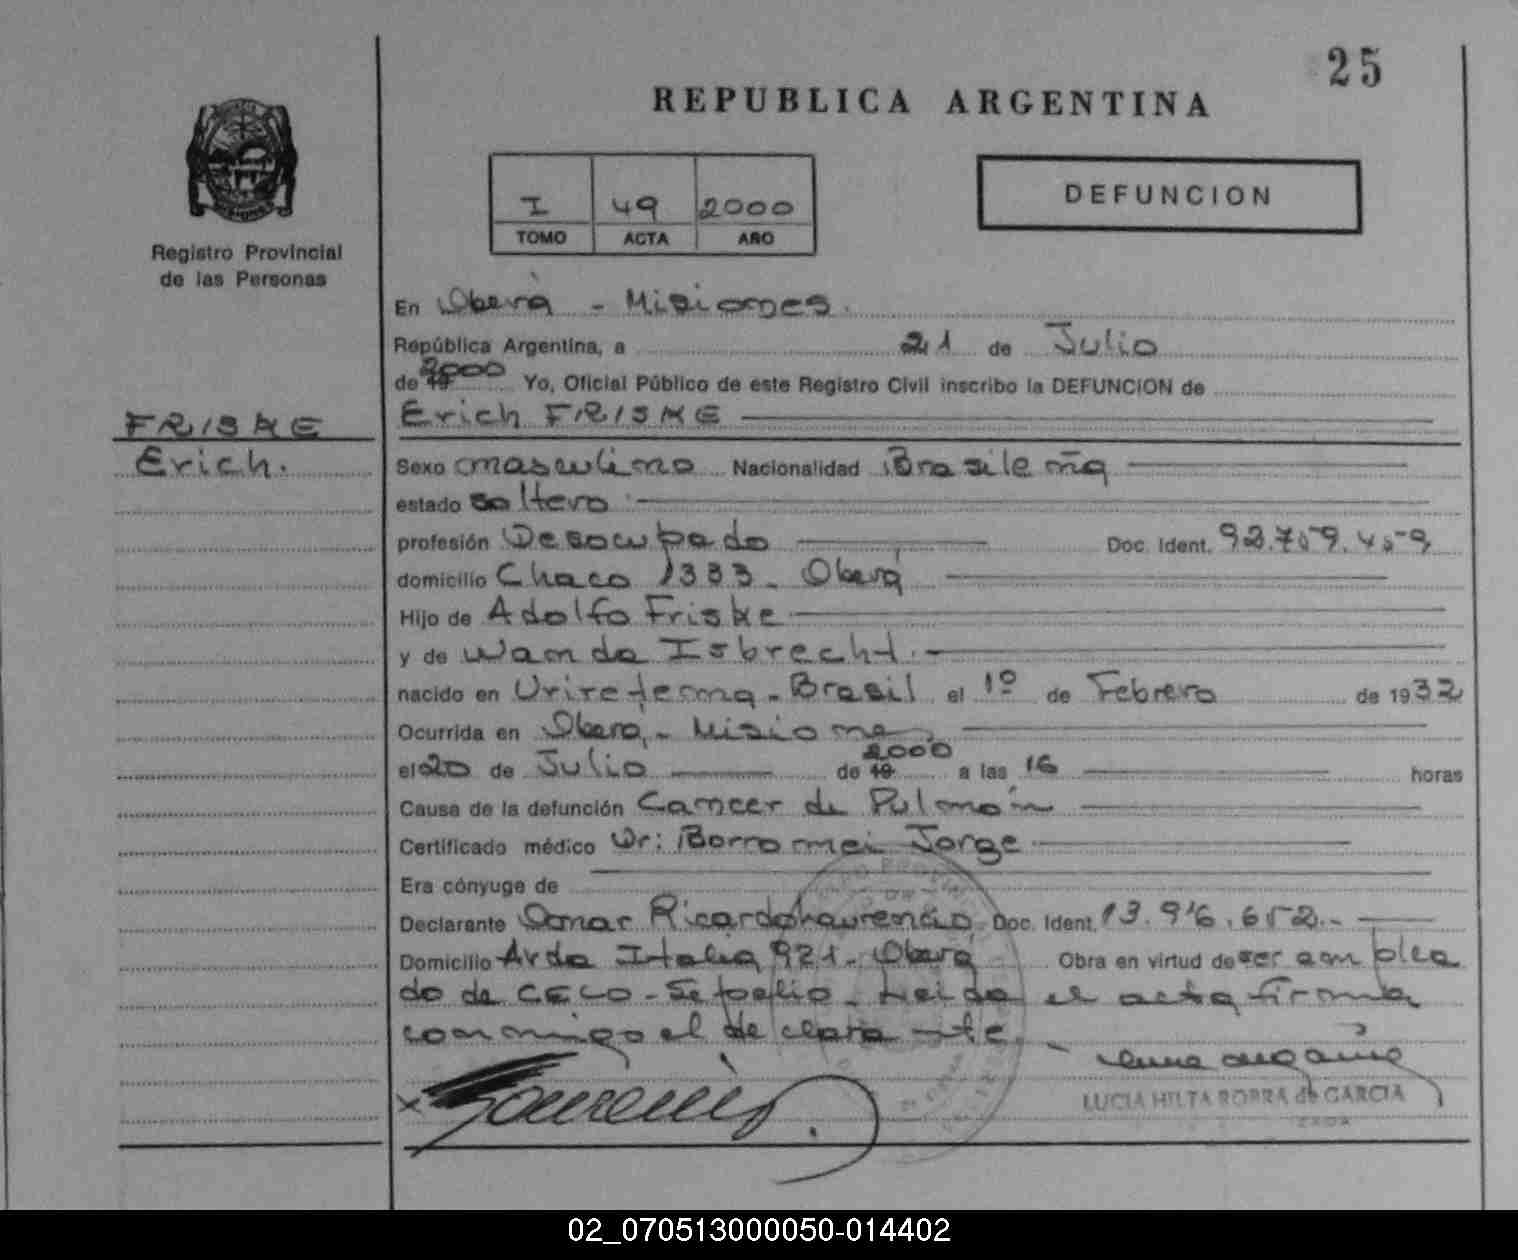 25
REPUBLICA ARGENTINA
I 49 2000
TOMO ACTA AÑO
DEFUNCION
Registro Provincial
de las Personas
En Oberá - Misiones.
República Argentina, a 21 de Julio
de 19 2000 Yo, Oficial Público de este Registro Civil inscribo la DEFUNCION de
FRISKE
Erich FRISKE
Erich.
Sexo masculino Nacionalidad Brasileña
estado soltero
profesión Desocupado Doc. Ident. 92.759.459
domicilio Chaco 1333 - Oberá
Hijo de Adolfo Friske
y de Wanda Isbrecht. -
nacido en Brasil el 1º de Febrero de 1932
Ocurrida en Oberá - Misiones
el 20 de Julio de 19 2000 a las 16 horas
Causa de la defunción Cancer de Pulmón
Certificado médico Dr: Borromei Jorge
Era cónyuge de
Declarante Omar Ricardo Laurencio Doc. Ident. 13.916.652.-
Domicilio Avda Italia 921 - Oberá Obra en virtud de ser emplea
do de CELO - Sepelio - Leida el acta firma
conmigo el declarante. -
LUCIA HILTA ROBRA de GARCIA
02_070513000050-014402